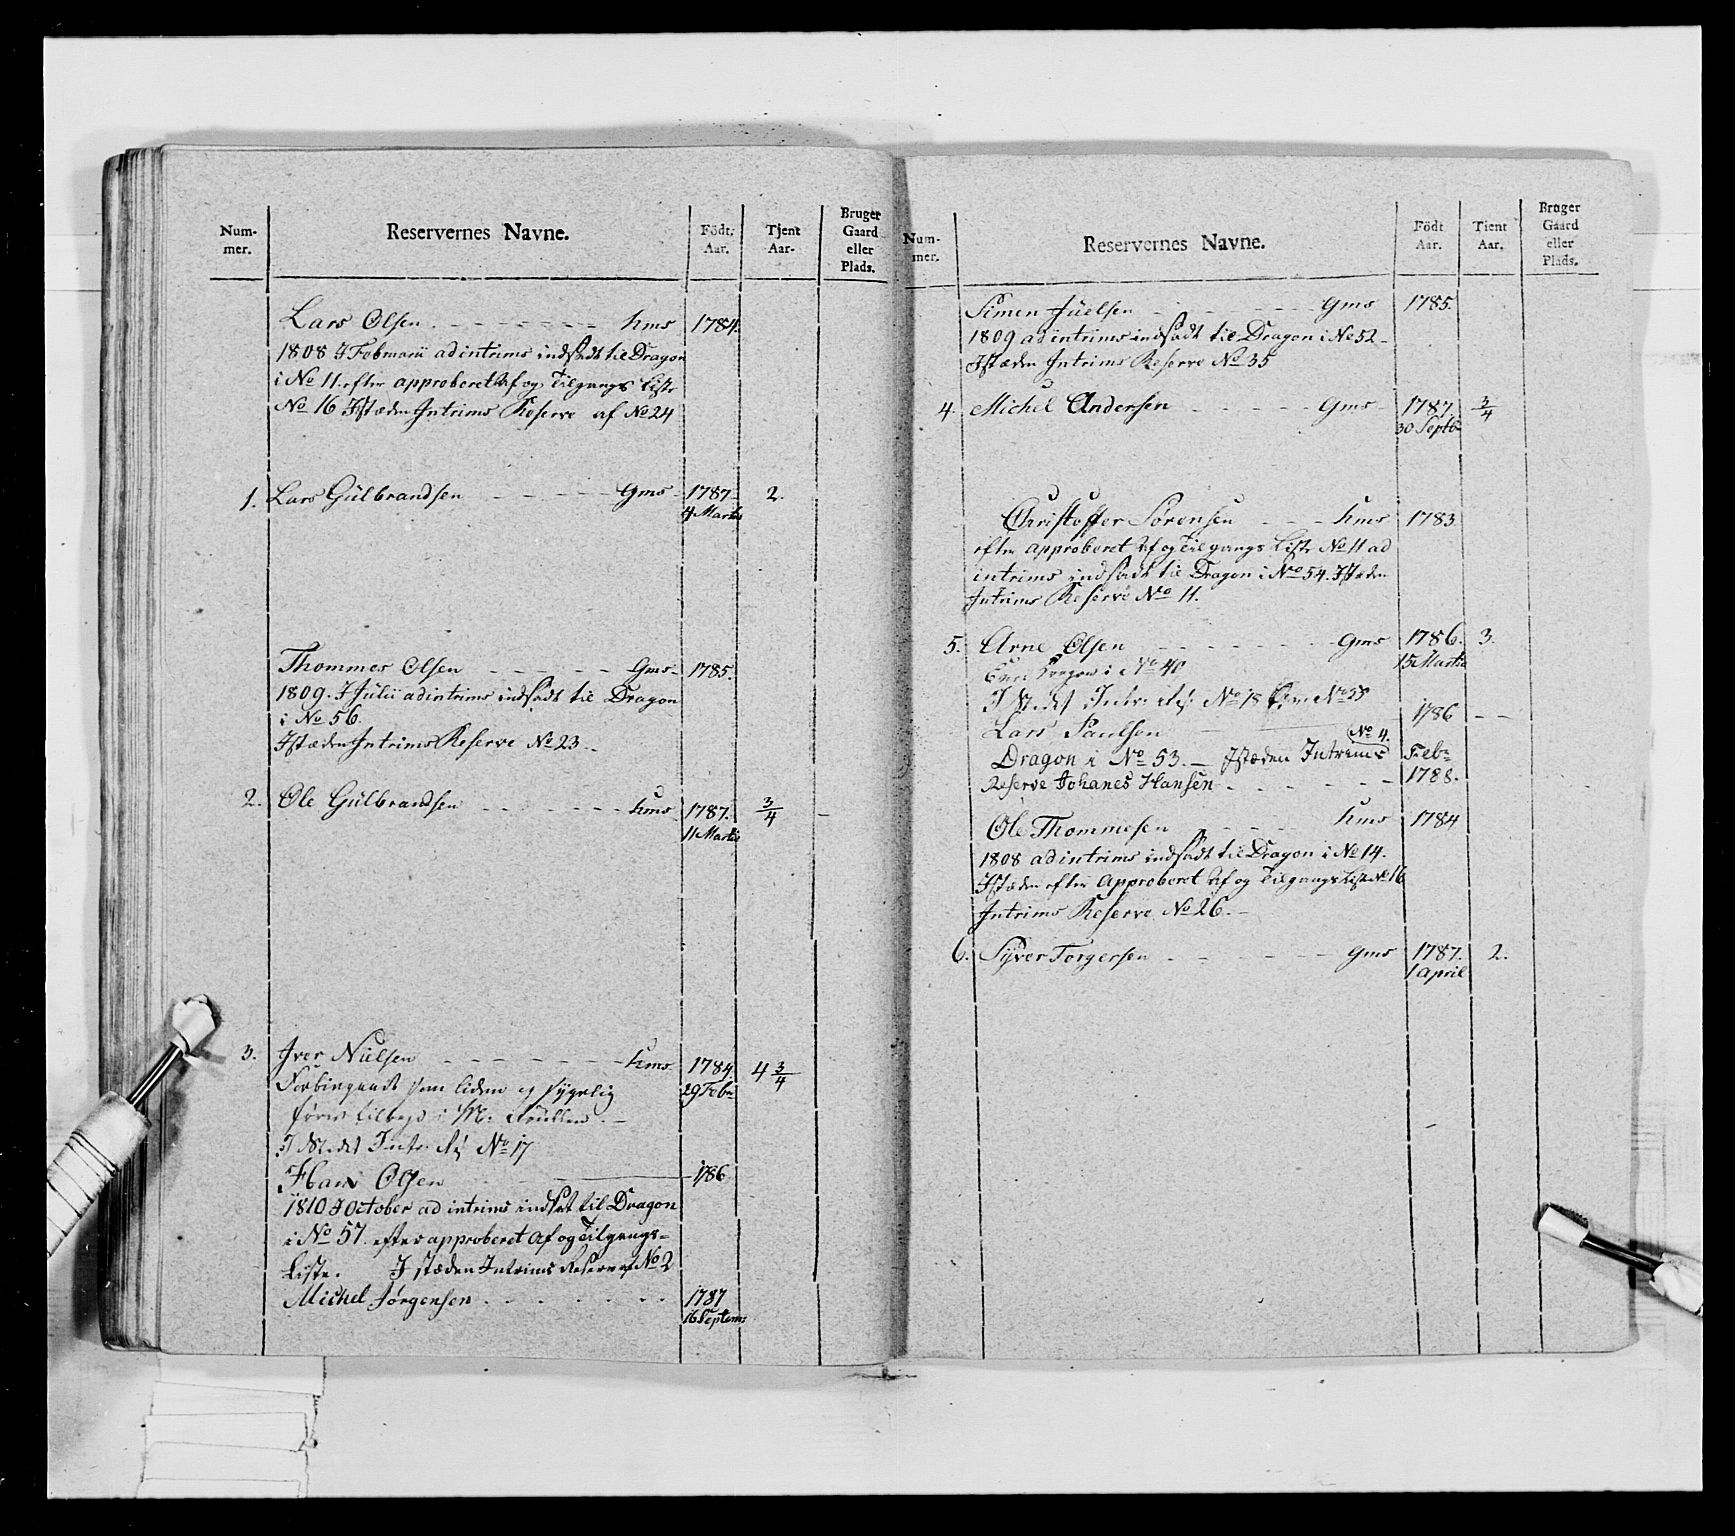 Num-
mer.
Reservernes Navne.
Födt.
Aar.
Tjent
Aar.
Bruger
Gaard
eller
Plads.
Lars Olsen - - - - - - hms 1784.
1808 I Februarii ad intrims indsadt til Dragon
i No 11. efter approberet Af og Tilgangs Liste
No 16 Istæden Intrims Reserve af No 24
1. Lars Gülbrandsen - - - - - Gms - 1787 2.
4 Martii
Thommes Olsen - - - - - Gms - 1785.
1809. I Julii ad intrims indsadt til Dragon
i No 56.
Istæden Intrims Reserve No 23.
2. Ole Gülbrandsen - - - - - - hms 1787. 3/4 -
11 Martii
3. Iver Nielsen - - - - - - hms 1784. 4 3/4
29 Febr
som liden og sygelig
I Stedet Intr. No 17
Hans Olsen 1786
1810 I October ad intrims indsat til Dragon
i No 57. efter approberet Af og Tilgangs-
Liste. I stæden Intrims Reserve af No 2
Michel Jörgensen . . . . . . 1787
16 Septem
Num-
mer.
Reservernes Navne.
Födt
Aar.
Tient
Aar.
Bruger
Gaard
eller
Plads.
Simen Jüelsen - - - - - Gms 1785.
1809 ad intrims indsadt til Dragon i No 52 -
Istæden Intrims Reserve No 35
4. Michel Andersen - - - - - Gms - 1787. 3/4
30 Septb
Christoffer Sörensen - - - hms 1783
efter approberet Af og Tilgangs Liste No 11 ad
intrims indsadt til Dragon i No 54. Istæden
Intrims Reserve No 11.
5. Arne Olsen - - - - - - Gms 1786. 3.
15 Martii
Dragon i No 40
I Stedet Intr. No 18 No 53
Lars Paulsen 1786 - -
No 4.
Dragon i No 53. - Istæden Intrims Feb
Reserve Johanes Hansen - - - - 1788.
Ole Thommesen - - - - hms 1784
1808 ad intrims indsadt til Dragon i No 14.
Istæden efter Approberet Af og Tilgangs List No 16
Intrims Reserve No 26. -
6. Syver Torgersen - - - - - Gms 1787. 2.
1 April